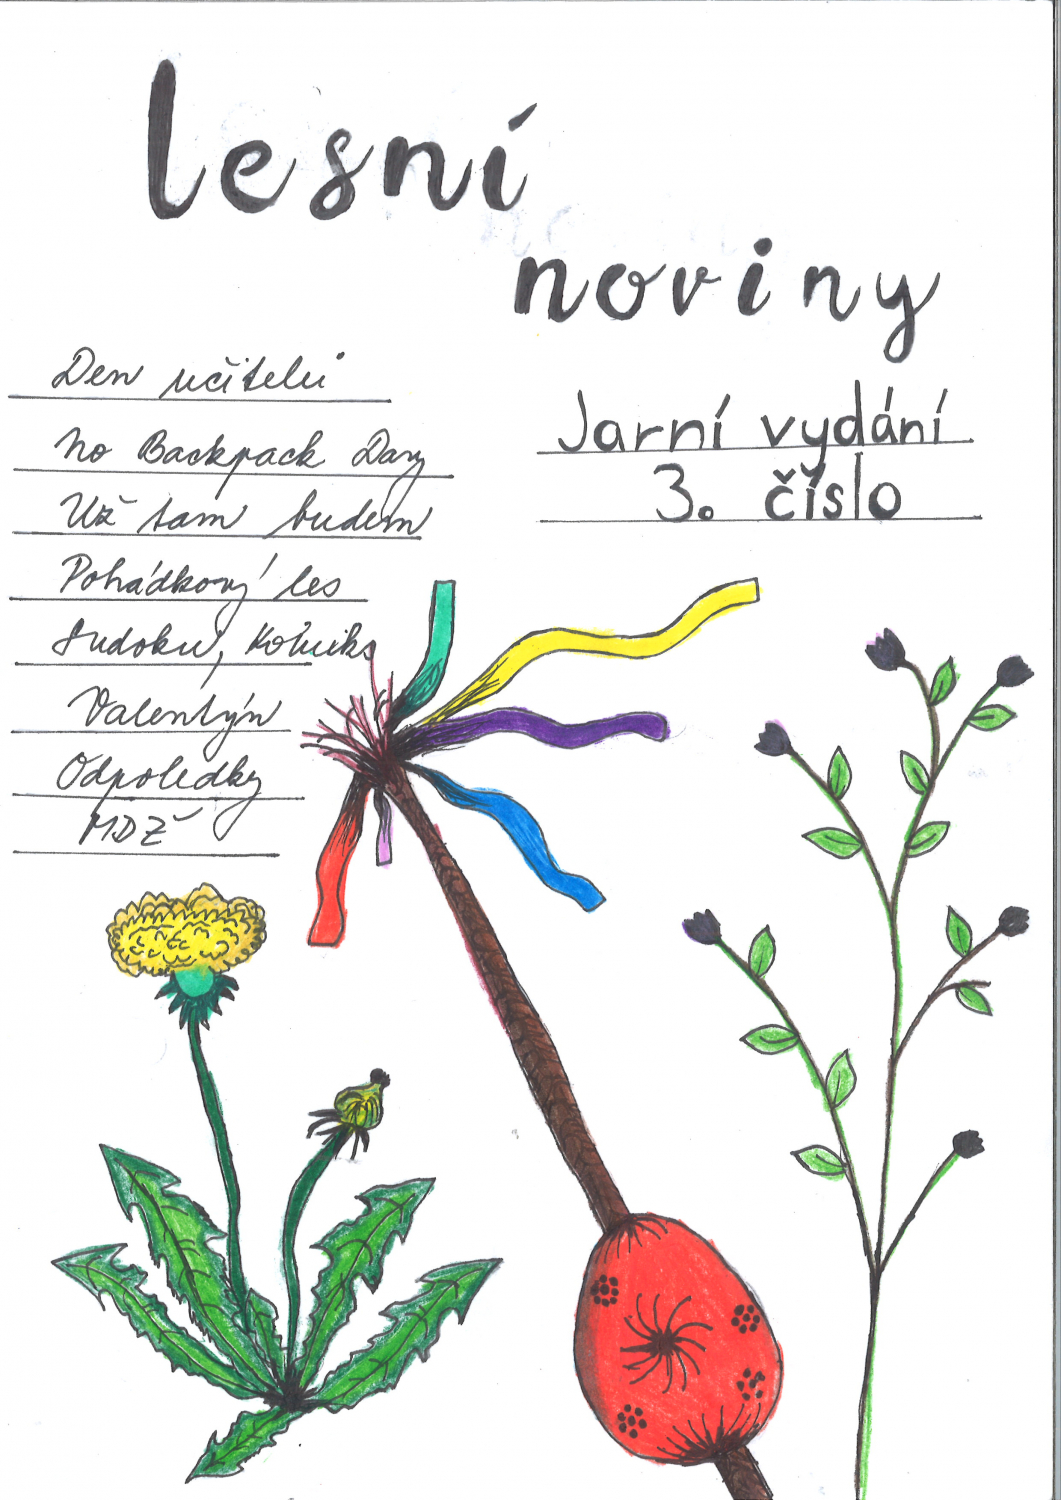 lesní
noviny
Jarní vydání
3. číslo
Den učitelů
No Backpack Day
Už tam budem
Pohádkový les
Sudoku, Komiks
Valentýn
Odpoledky
MDŽ